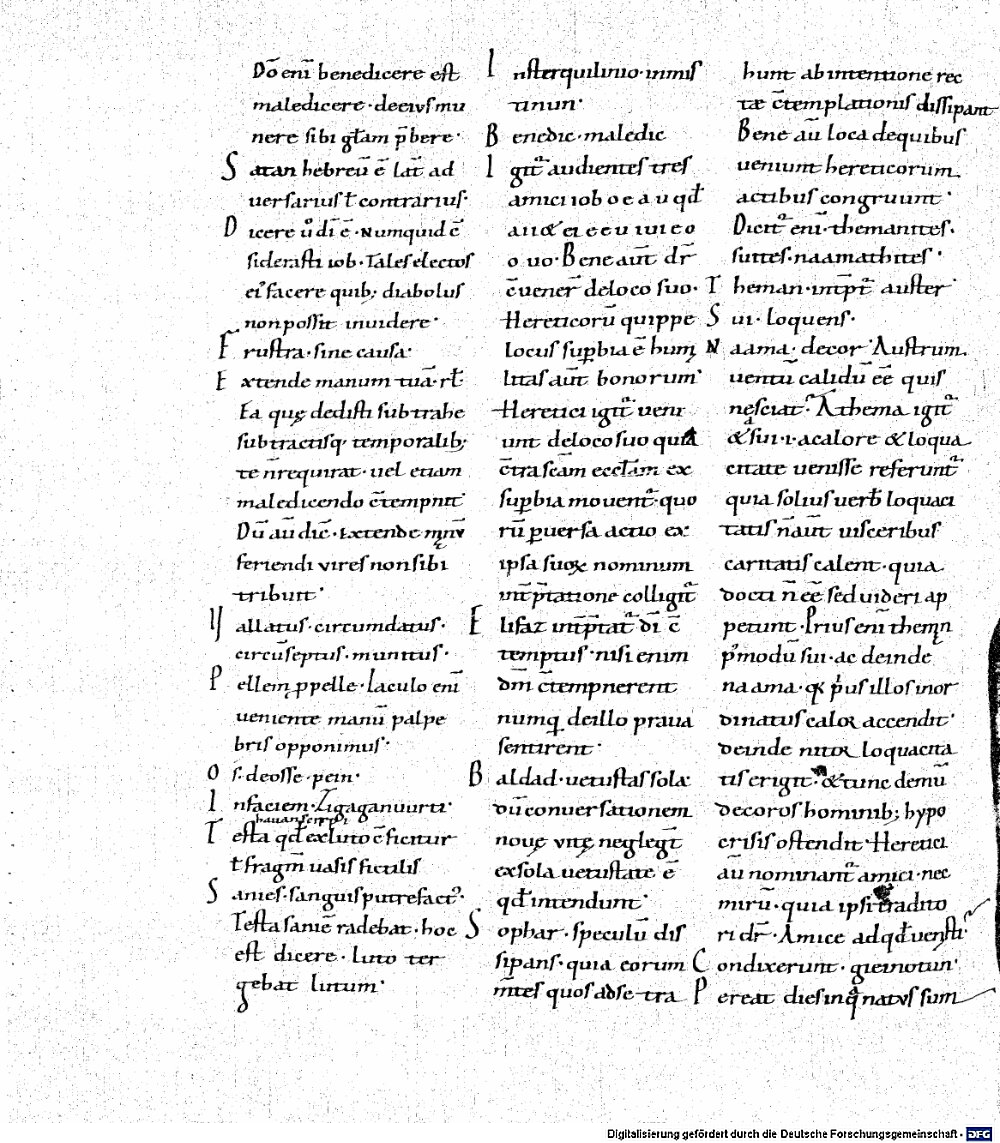 Dō enī benedicere est
maledicere · deeius mu
nere sibi gl̄am p̄bere ·
Satan hebreū ē lat̄ ad
uersarius ł contrarius ·
Dicere dī ē · Numquid c̄
siderasti iob · Tales electos
ei facere quib; diabolus
non possit inuidere ·
Frustra · sine causa ·
Extende manum tuā · rł
Ea quę dedisti subtrahe
subtractisq; temporalib;
te n̄ requirat · uel etiam
maledicendo c̄tempnit
Dū aū dic̄ · Extende
feriendi vires non sibi
tribuit ·
Vallatus · circumdatus ·
circūseptus · munitus ·
Pellem p pelle · Iaculo enī
ueniente manū palpe
bris opponimus ·
Os · deosse · pein ·
Infaciem · Zigaganuurti ·
hauanscerpi
Testa qđ exluto c̄ficitur
ł fragm̄ uasis fictilis
Sanies · sanguis putrefact᷒ ·
Testa saniē radebat · hoc
est dicere · luto ter
gebat lutum ·
Insterquilinio · inmis
tinun ·
Benedic · maledic
Igit̄ audientes tres
amici iob o e a u qđ
o uo · Bene aūt dr̄
c̄uener̄ deloco suo ·
Hereticorū quippe
locus sup̱bia ē hum
litas aūt bonorum
Heretici igit̄ veni
unt deloco suo quia
c̄tra sc̄am eccl̄am ex
sup̱bia mouent̄ · quo
rū p̱uersa actio ex
ipsa suoꝝ nominum
int̄p̄tatione colligit̄
Elifaz int̄p̄tat̄ dī c̄
temptus · nisi enim
dm̄ c̄tempnerent
numq̱ deillo praua
sentirent ·
Baldad · uetustas sola
dū conuersationem
nouę vitę neglegt̄
exsola uetustate ē
qđ intendunt ·
Sophar · speculū dis
sipans · quia eorum
m̄tes quos adse tra
hunt ab intentione rec
tæ c̄templationis dissipant
Bene aū loca dequibus
ueniunt hereticorum
actibus congruunt ·
Dicit̄ enī · themanites ·
suites · naamathites ·
Theman · int̄p̄t̄ auster
Sui · loquens ·
Naama · decor · Austrum
uentū calidū eē quis
nesciat · A thema igit̄
& sui · i · acalore & loqua
citate uenisse referunt̄
quia solius uerb̄ loquaci
tatis n̄ aūt uisceribus
caritatis calent · quia
docti n̄ eē sed uideri ap
petunt · Prius enī
p̄modū sui · ac deinde
naama · p̓us illos inor
dinatus calor accendit ·
deinde nitor loquacita
tis erigit · & tunc demū
decoros hominib; hypo
crisis ostendit · Heretici
aū nominant̄ amici · nec
mirū · quia ipsi tradito
ri dr̄ · Amice ad qđ uenisti ·
Condixerunt · gieinotun ·
Pereat dies in natus sum